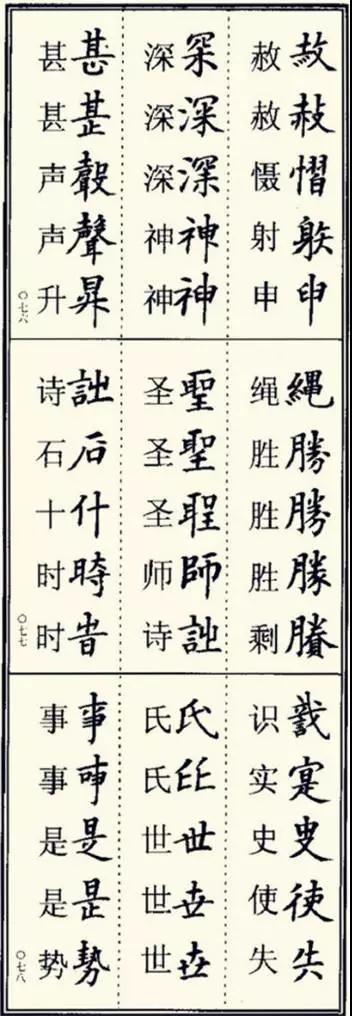 慴申
赦赦慑射申
罙深深神神
深深深神神
甚聲昇
甚甚声声升
〇七六
繩勝勝賸
绳胜胜胜剩
聖聖師
圣圣圣师诗
石什時旹
诗石十时时
〇七七
寔使失
识实史使失
氏世
氏氏世世世
事是是勢
事事是是势
〇七八